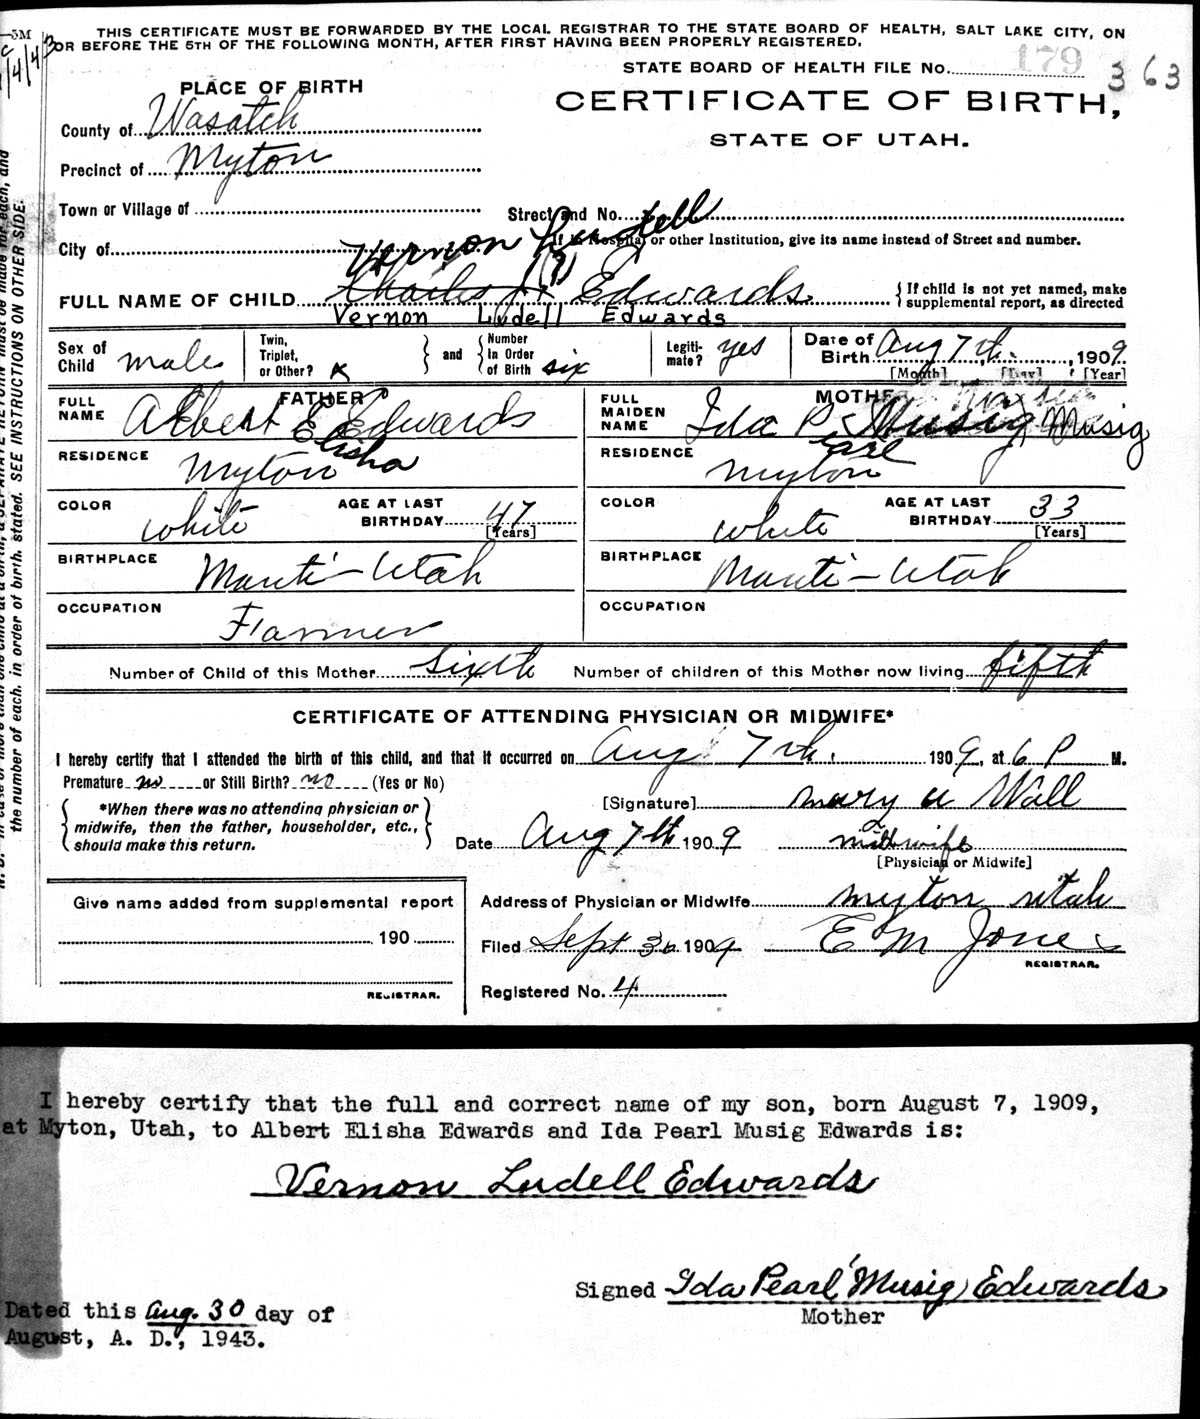 THIS CERTIFICATE MUST BE FORWARDED BY THE LOCAL REGISTRAR TO THE STATE BOARD OF HEALTH, SALT LAKE CITY, ON
OR BEFORE THE 5TH OF THE FOLLOWING MONTH, AFTER FIRST HAVING BEEN PROPERLY REGISTERED.
STATE BOARD OF HEALTH FILE No. 179 363
PLACE OF BIRTH
CERTIFICATE OF BIRTH,
STATE OF UTAH.
County of Wasatch
Precinct of Myton
Town or Village of
Street and No.
City of
If in Hospital or other Institution, give its name instead of Street and number.
Vernon Ludell
FULL NAME OF CHILD Charles (?) Edwards
If child is not yet named, make
supplemental report, as directed
Vernon Ludell Edwards
Sex of Child male
Twin, Triplet, or Other? x
and
Number in Order of Birth six
Legiti-mate? yes
Date of Birth Aug 7th. , 1909
[Month] [Day] [Year]
FATHER
FULL NAME Albert E Edwards
Elisha
RESIDENCE Myton
COLOR white
AGE AT LAST BIRTHDAY 47
[Years]
BIRTHPLACE Manti - Utah
OCCUPATION Farmer
MOTHER
FULL MAIDEN NAME Ida P. Musig Musig
earl
RESIDENCE myton
COLOR white
AGE AT LAST BIRTHDAY 33
[Years]
BIRTHPLACE Manti - Utah
OCCUPATION
Number of Child of this Mother sixth Number of children of this Mother now living fifth
CERTIFICATE OF ATTENDING PHYSICIAN OR MIDWIFE*
I hereby certify that I attended the birth of this child, and that it occurred on Aug 7th. 1909, at 6 P M.
Premature no or Still Birth? no (Yes or No)
*When there was no attending physician or
midwife, then the father, householder, etc.,
should make this return.
[Signature] Mary A Wall
Date Aug 7th 1909 midwife
[Physician or Midwife]
Give name added from supplemental report
190
REGISTRAR.
Address of Physician or Midwife myton utah
Filed Sept 30 1909 E M Jones
REGISTRAR.
Registered No. 4
the number of each, in order of birth, stated. SEE INSTRUCTIONS ON OTHER SIDE.
I hereby certify that the full and correct name of my son, born August 7, 1909,
at Myton, Utah, to Albert Elisha Edwards and Ida Pearl Musig Edwards is:
Vernon Ludell Edwards
Signed Ida Pearl Musig Edwards
Mother
Dated this Aug. 30 day of
August, A. D., 1943.